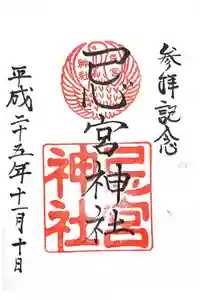 参拝記念
忌宮神社
忌宮
神社
平成二十五年十一月十日